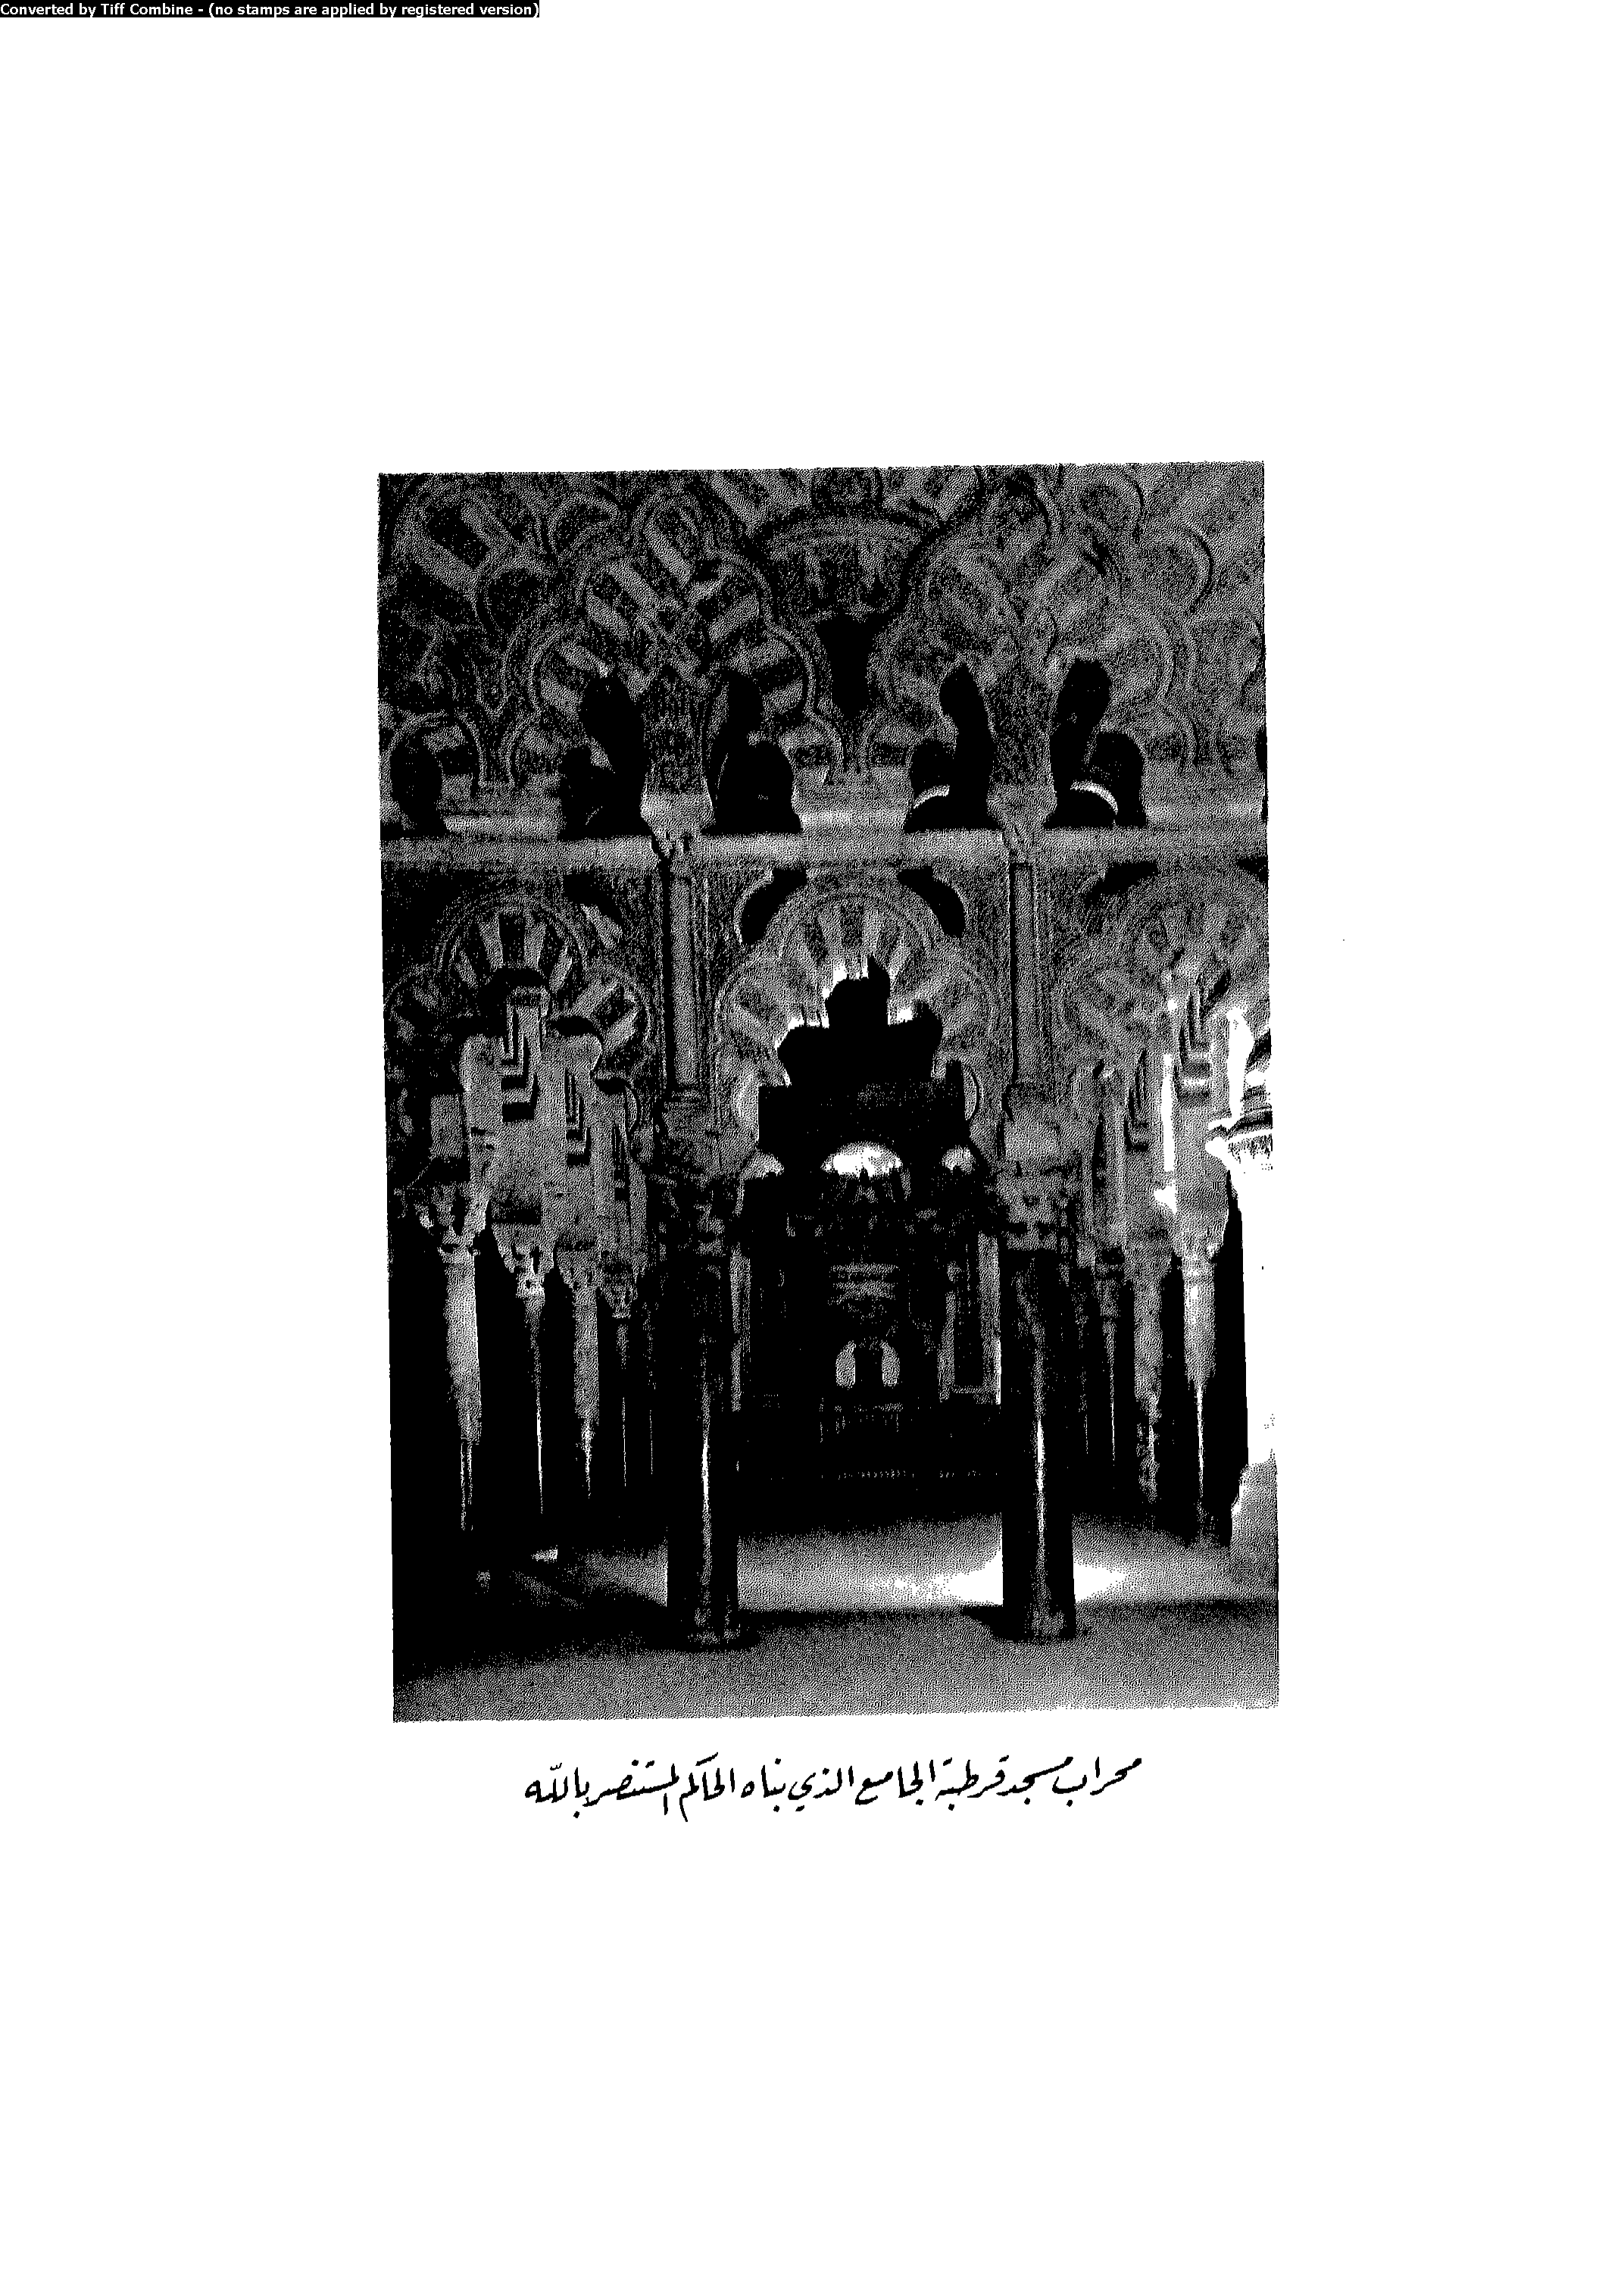 Converted by Tiff Combine - (no stamps are applied by registered version)
محراب مسجد قرطبة الجامع الذي بناه الحاكم المستنصر بالله